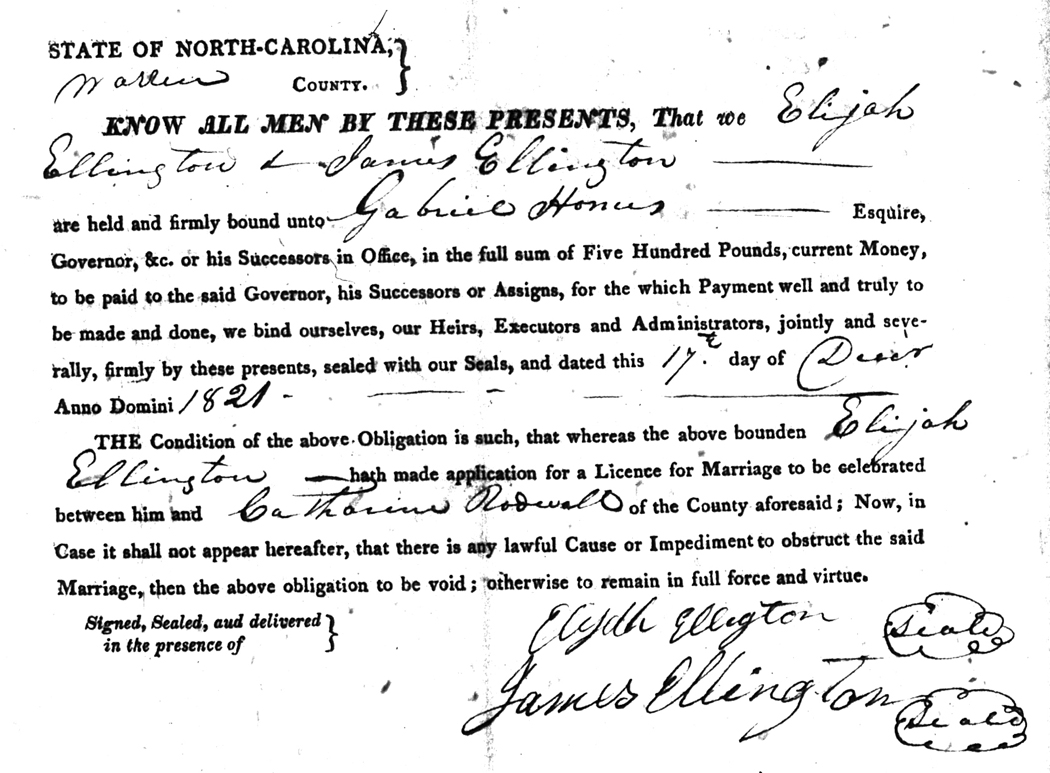 STATE OF NORTH-CAROLINA,
Warren COUNTY.
KNOW ALL MEN BY THESE PRESENTS, That we Elijah
Ellington & James Ellington
are held and firmly bound unto Gabriel Homes Esquire,
Governor, &c. or his Successors in Office, in the full sum of Five Hundred Pounds, current Money,
to be paid to the said Governor, his Successors or Assigns, for the which Payment well and truly to
be made and done, we bind ourselves, our Heirs, Executors and Administrators, jointly and seve-
rally, firmly by these presents, sealed with our Seals, and dated this 17th day of Decer
Anno Domini 1821
THE Condition of the above Obligation is such, that whereas the above bounden Elijah
Ellington hath made application for a Licence for Marriage to be celebrated
between him and Catharine Rodwell of the County aforesaid; Now, in
Case it shall not appear hereafter, that there is any lawful Cause or Impediment to obstruct the said
Marriage, then the above obligation to be void; otherwise to remain in full force and virtue.
Signed, Sealed, aud delivered
in the presence of
Elijah Ellington Seal
James Ellington Seal